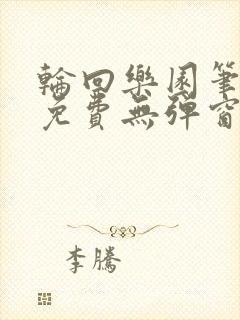 輪回樂園筆
免費無彈窗
李騰